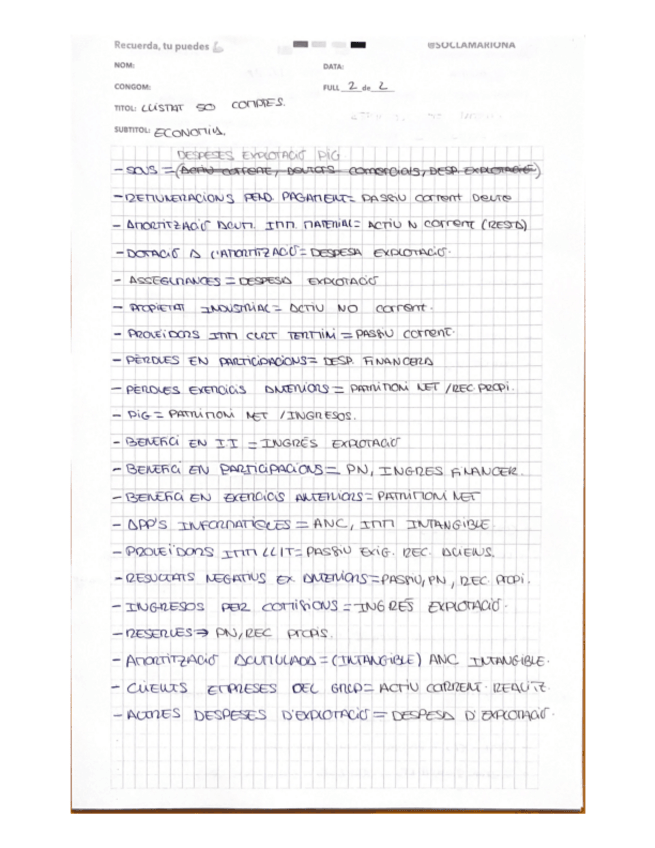 Recuerda, tu puedes
@SOCLAMARIONA
NOM:
DATA:
CONGOM:
FULL 2 de 2
TITOL: LLISTAT SO COMPTES.
SUBTITOL: ECONOMIA.
DESPESES EXPLOTACIÓ PIG
- SOUS = (Actiu corrent, deutors comercials, DESP. EXPLOTACIÓ)
- REMUNERACIONS PEND PAGAMENT = PASSIU corrent Deute
- AMORTITZACIÓ ACUM. IMM. MATERIAL = ACTIU N corrent (RESTA)
- DOTACIÓ A L'AMORTITZACIÓ = DESPESA EXPLOTACIÓ.
- ASSEGURANCES = DESPESA EXPLOTACIÓ
- PROPIETAT INDUSTRIAL = ACTIU NO corrent.
- PROVEÏDORS IMM CURT TERMINI = PASSIU corrent.
- PÈRDUES EN PARTICIPACIONS = DESP. FINANCERA
- PÈRDUES EXERCICIS ANTERIORS = PATRIMONI NET / REC PROPI.
- PIG = PATRIMONI NET / INGRESOS.
- BENEFICI EN II = INGRÉS EXPLOTACIÓ
- BENEFICI EN PARTICIPACIONS = PN, INGRES FINANCER.
- BENEFICI EN EXERCICIS ANTERIORS = PATRIMONI NET
- APP'S INFORMATIQUES = ANC, IMM INTANGIBLE
- PROVEÏDORS IMM LLIT = PASSIU EXIG. REC. ALIENS.
- RESULTATS NEGATIUS EX ANTERIORS = PASSIU, PN, REC. PROPI.
- INGRESOS PER COMISIONS = INGRÉS EXPLOTACIÓ.
- RESERVES → PN, REC PROPIS.
- AMORTITZACIÓ ACUMULADA = (INTANGIBLE) ANC INTANGIBLE.
- CLIENTS EMPRESES DEL GRUP = ACTIU CORRENT. REALITZ.
- ALTRES DESPESES D'EXPLOTACIÓ = DESPESA D'EXPLOTACIÓ.